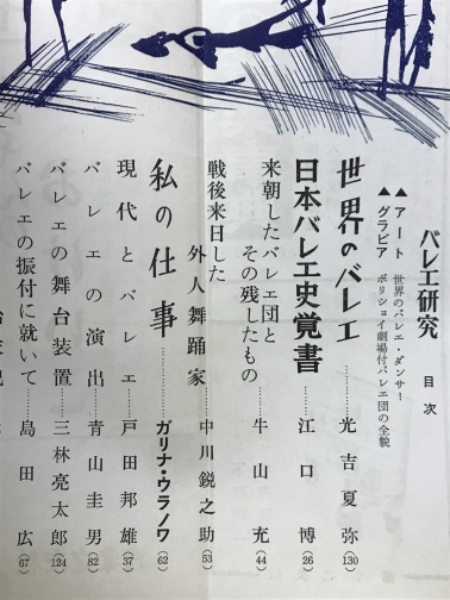 バレエ研究　目次
▲アート　世界のバレエ・ダンサー
▲グラビア　ボリショイ劇場付バレエ団の全貌
世界のバレエ…………光吉夏弥(130)
日本バレエ史覚書…………江口博(26)
来朝したバレエ団と
その残したもの…………牛山充(44)
戦後来日した
外人舞踊家…………中川鋭之助(53)
私の仕事…………ガリナ・ウラノワ(62)
現代とバレエ…………戸田邦雄(37)
バレエの演出…………青山圭男(82)
バレエの舞台装置…………三林亮太郎(124)
バレエの振付に就いて…………島田広(67)